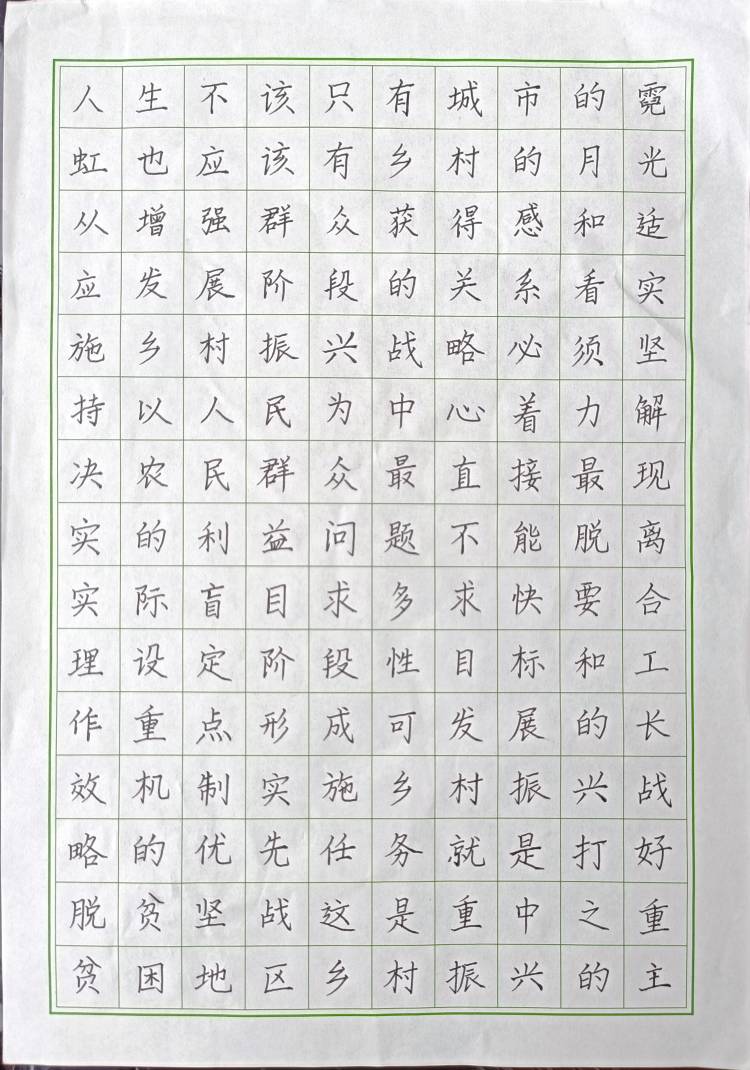 人生不该只有城市的霓
虹也应该有乡村的月光
从增强群众获得感和适
应发展阶段的关系看实
施乡村振兴战略必须坚
持以人民为中心着力解
决农民群众最直接最现
实的利益问题不能脱离
实际盲目求多求快要合
理设定阶段性目标和工
作重点形成可发展的长
效机制实施乡村振兴战
略的优先任务就是打好
脱贫坚战这是重中之重
贫困地区乡村振兴的主